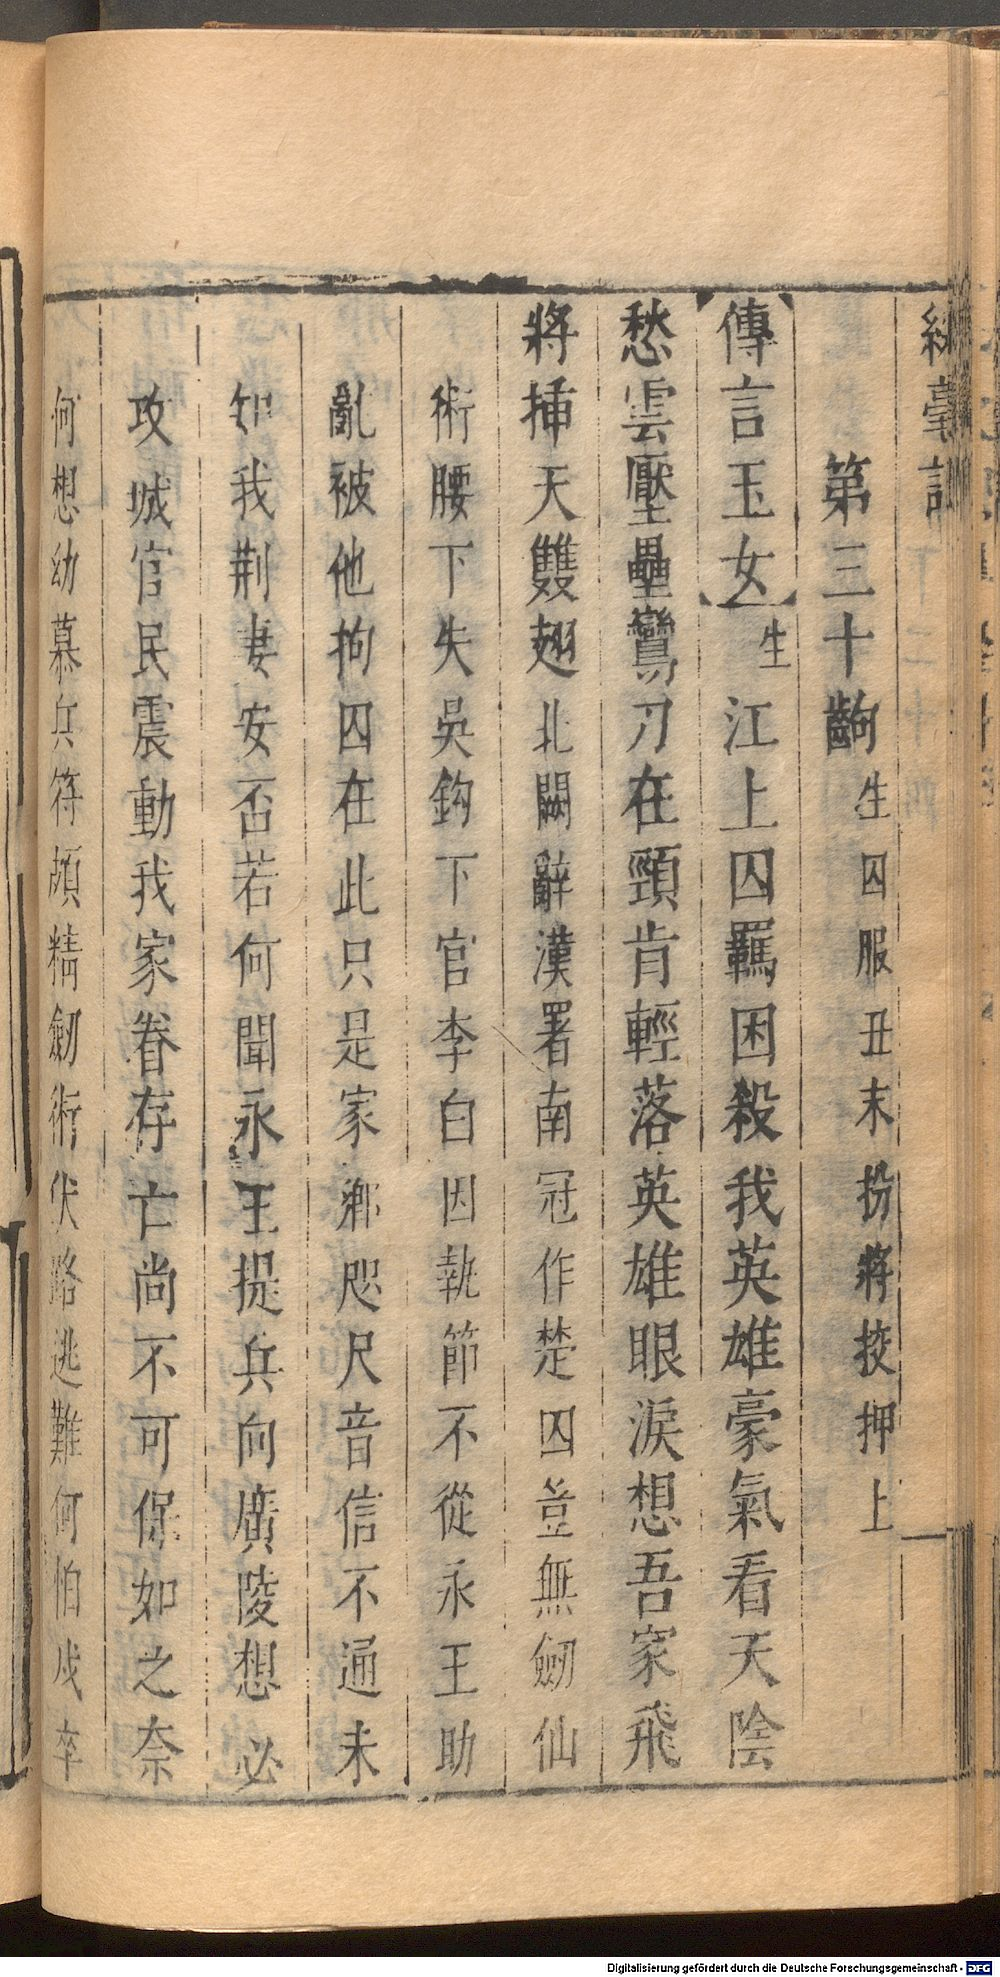 綵毫記
第三十齣 生囚服丑末扮將挍押上
傳言玉女 生 江上囚羈困殺我英雄豪氣看天陰
愁雲壓壘鸞刀在頸肯輕落英雄眼淚想吾家飛
將挿天雙翅 北闕辭漢署南冠作楚囚豈無劒仙
術腰下失吳鈎下官李白因執節不從永王助
亂被他拘囚在此只是家鄉咫尺音信不通未
知我荆妻安否若何聞永王提兵向廣陵想必
攻城官民震動我家眷存亡尚不可保如之奈
何想幼慕兵符頗精劒術伏路逃難何怕戍卒
Digitalisierung gefördert durch die Deutsche Forschungsgemeinschaft - DFG